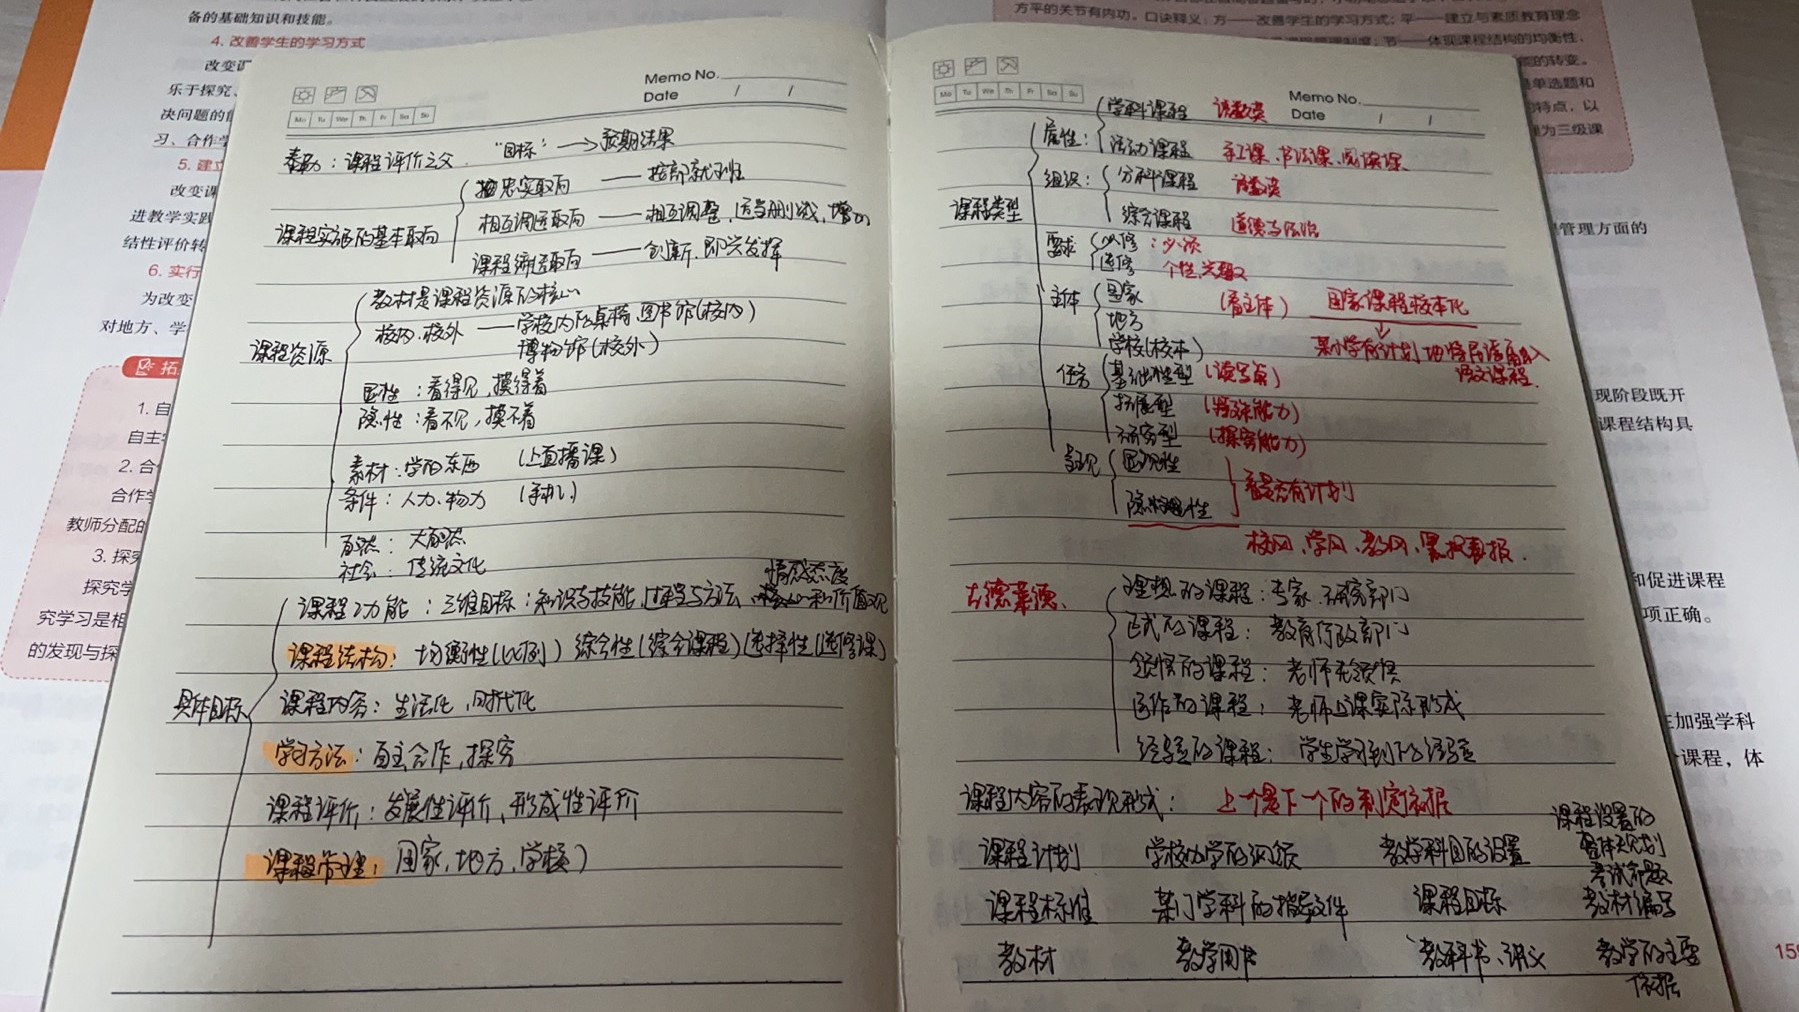 备的基础知识和技能。
4. 改善学生的学习方式
改变课
乐于探究、
决问题的能
习、合作学
5. 建立
改变课
进教学实践
结性评价转
6. 实行
为改变
对地方、学
拓
1. 自
自主
2. 合
合作学
教师分配的
3. 探究
探究学
究学习是相
的发现与探
Memo No.
Date / /
Mo Tu We Th Fr Sa Su
泰勒：课程评价之父 “目标”→预期结果
课程实施的基本取向
忠实取向——按部就班
相互调适取向——相互调整，适当删减，增加
课程缔造取向——创新，即兴发挥
课程资源
教材是课程资源的核心
校内、校外——学校内的桌椅、图书馆（校内）
博物馆（校外）
显性：看得见，摸得着
隐性：看不见，摸不着
素材：学的东西（上直播课）
条件：人力、物力（手机）
自然：大自然
社会：传统文化
具体目标
情感态度
课程功能：三维目标：知识与技能，过程与方法，和价值观
课程结构：均衡性（比例）综合性（综合课程）选择性（选修课）
课程内容：生活化，时代化
学习方法：自主合作，探究
课程评价：发展性评价，形成性评价
课程管理：国家，地方，学校）
方平的关节有内功。口诀释义：方——改善学生的学习方式；平——建立与素质教育理念
节——体现课程结构的均衡性、
能的转变。
单选题和
的特点，以
理为三级课
Memo No.
Date / /
Mo Tu We Th Fr Sa Su
课程类型
属性：学科课程 语数英
活动课程 手工课、书法课、阅读课
组织：分科课程 语数英
综合课程 道德与法治
要求 必修：必须
选修 个性，兴趣
主体 国家 （看主体） 国家课程校本化
地方
学校（校本） 某小学有计划地将
语文课程
任务 基础型（读写算）
拓展型
研究型（探究能力）
表现 显性
隐性
看是否有计划
校风、学风、教风、黑板报
古德莱德、
理想的课程：专家、研究部门
正式的课程：教育行政部门
领悟的课程：老师去领悟
运作的课程：老师上课实际形成
经验的课程：学生学习到的经验
课程内容的表现形式：上一个是下一个的制定依据
课程计划 学校办学的纲领 教学科目的设置 课程设置的整体规划
课程标准 某门学科的指导文件 课程目标 考试命题 教材编写
教材 教学用书 教科书、讲义 教学的主要依据
程管理方面的
现阶段既开
课程结构具
和促进课程
项正确。
在加强学科
课程，体